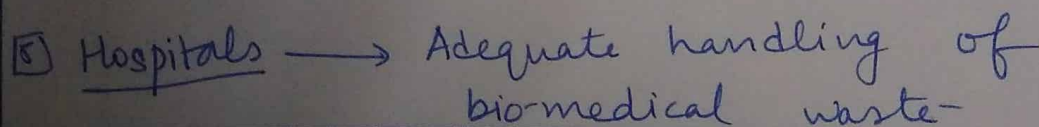 [5] Hospitals ⟶ Adequate handling of
bio-medical waste-